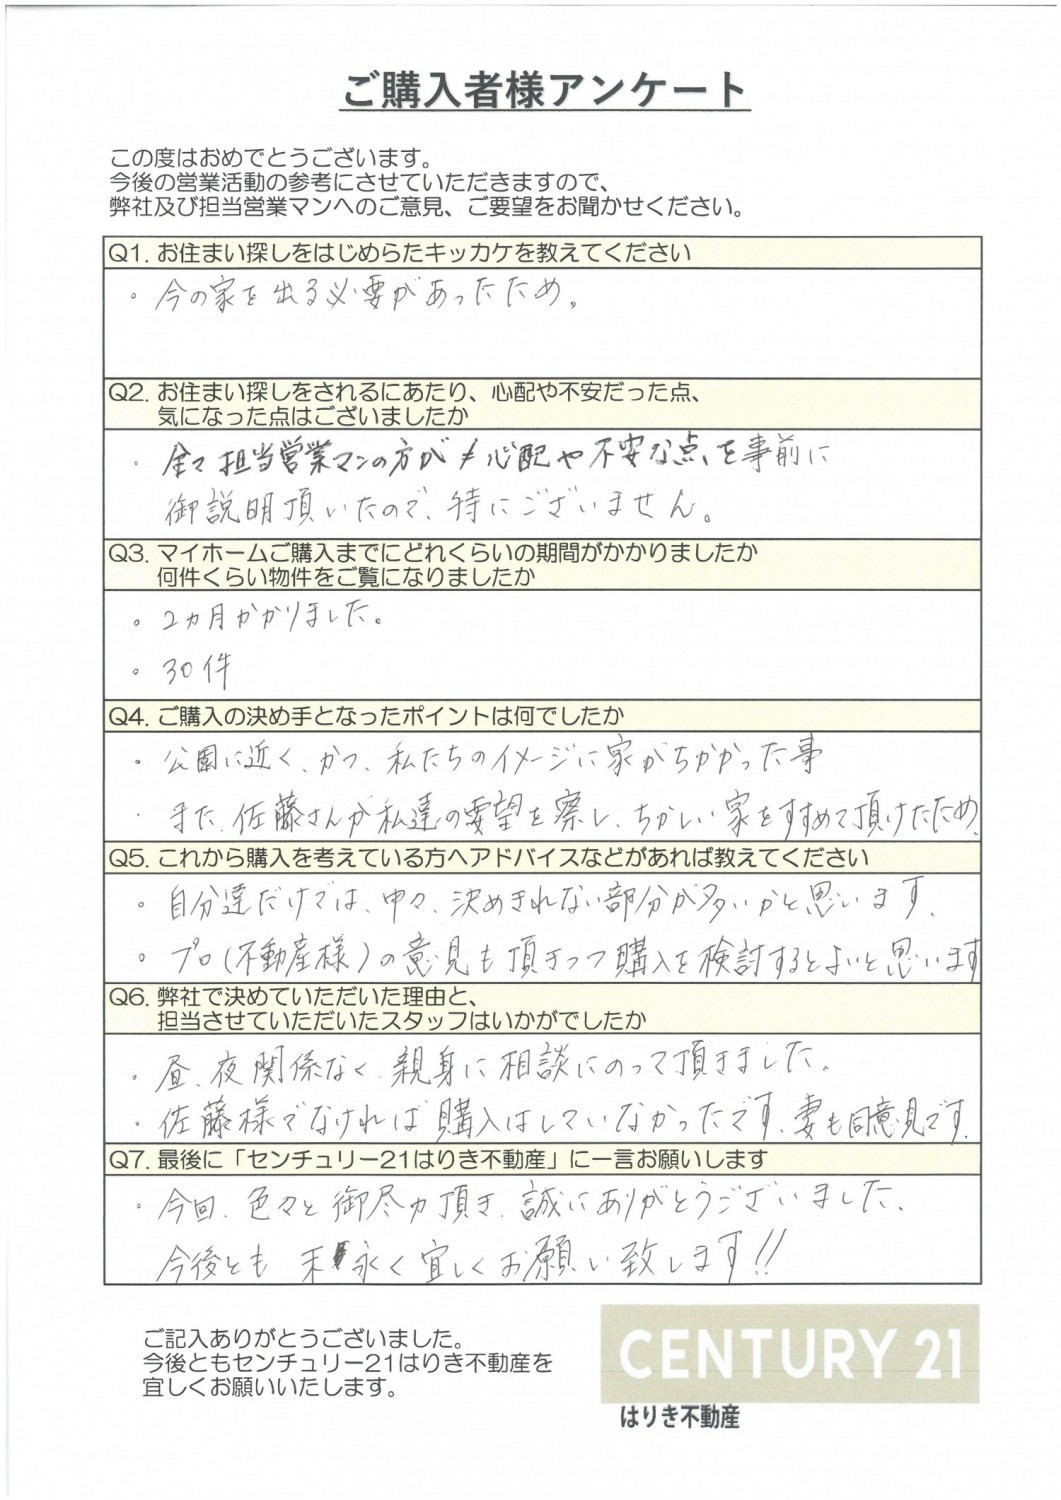 ご購入者様アンケート
この度はおめでとうございます。
今後の営業活動の参考にさせていただきますので、
弊社及び担当営業マンへのご意見、ご要望をお聞かせください。
Q1. お住まい探しをはじめらたキッカケを教えてください
・今の家を出る必要があったため。
Q2. お住まい探しをされるにあたり、心配や不安だった点、
気になった点はございましたか
・全て担当営業マンの方が心配や不安な点を事前に
御説明頂いたので、特にございません。
Q3. マイホームご購入までにどれくらいの期間がかかりましたか
何件くらい物件をご覧になりましたか
。2ヵ月かかりました。
。30件
Q4. ご購入の決め手となったポイントは何でしたか
・公園に近く、かつ、私たちのイメージに家がちかかった事
・また、佐藤さんが私達の要望を察し、ちかしい家をすすめて頂けたため。
Q5. これから購入を考えている方へアドバイスなどがあれば教えてください
。自分達だけでは、中々、決めきれない部分が多いかと思います。
。プロ(不動産様)の意見も頂きつつ購入を検討するとよいと思います
Q6. 弊社で決めていただいた理由と、
担当させていただいたスタッフはいかがでしたか
・昼、夜関係なく、親身に相談にのって頂きました。
・佐藤様でなければ購入はしていなかったです。妻も同意見です。
Q7. 最後に「センチュリー21はりき不動産」に一言お願いします
・今回、色々と御尽力頂き、誠にありがとうございました。
今後とも末永く宜しくお願い致します!!
ご記入ありがとうございました。
今後ともセンチュリー21はりき不動産を
宜しくお願いいたします。
CENTURY 21
はりき不動産